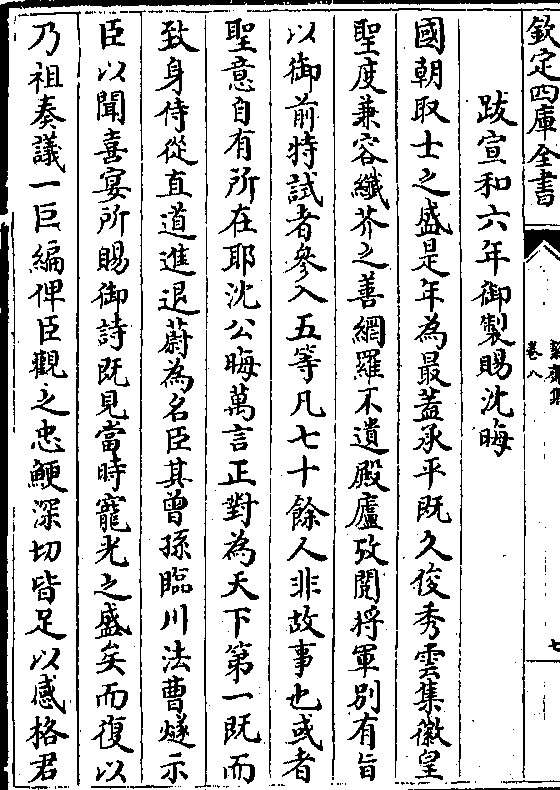 欽定四庫全書
卷八
七
跋宣和六年御製賜沈晦
國朝取士之盛是年為最蓋承平既久俊秀雲集徽皇
聖度兼容纖芥之善網羅不遺殿廬攷閱將軍別有旨
以御前特試者參入五等凡七十餘人非故事也或者
聖意自有所在耶沈公晦萬言正對為天下第一既而
致身侍從直道進退蔚為名臣其曾孫臨川法曹燧示
臣以聞喜宴所賜御詩既見當時寵光之盛矣而復以
乃祖奏議一巨編俾臣觀之忠鯁深切皆足以感格君